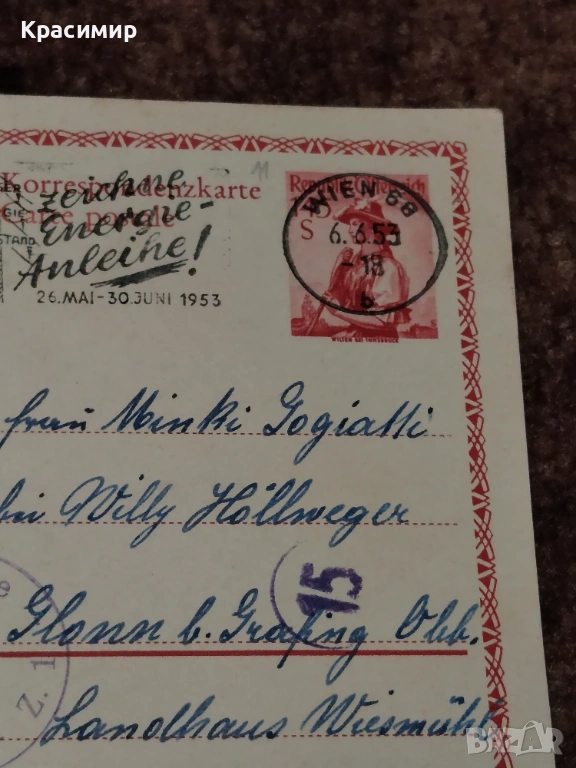 Красимир
Korrespondenzkarte
Carte postale
Republik Österreich
S
WILTEN BEI INNSBRUCK
WIEN 68
6.6.53
-18
b
zeichne
Energie-
Anleihe!
26.MAI-30.JUNI 1953
GIE
STAND
11
Frau Minki Gogiatti
bei Willy Höllweger
15
Glonn b. Grafing Obb.
Z. 1
Landhaus Wiesmühl
BAZAR